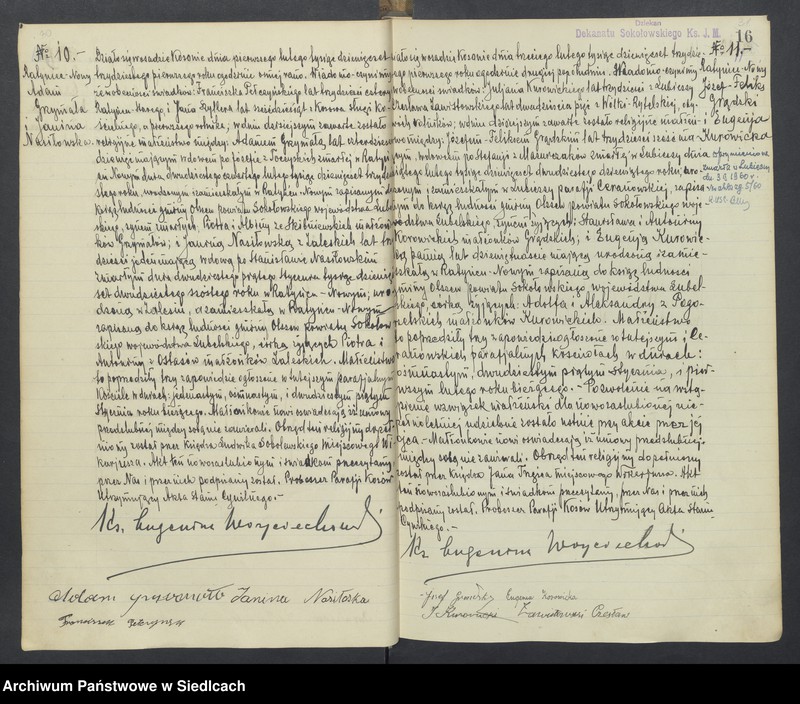 № 10.-
Ratyniec-Nowy
Adam
Grzymała
i Janina
Nasiłowska.
Działo się w osadzie Kosowie dnia pierwszego lutego tysiąc dziewięćset
trzydziestego pierwszego roku o godzinie ósmej rano. Wiadomo czynimy
że w obecności świadków: Franciszka Pełczyńskiego lat trzydzieści cztery z
Ratyńca-Starego i Jana Szyllera lat sześćdziesiąt z Kosowa sługi Ko-
ścielnego, a pierwszego rolnika; w dniu dzisiejszym zawarte zostało
religijne małżeństwo między: Adamem Grzymałą, lat czterdzieści
dziewięć mającym wdowcem po Józefie z Toczyskich zmarłej w Ratyń-
cu Nowym dnia dwudziestego lutego tysiąc dziewięćset trzydzie-
stego roku, urodzonym i zamieszkałym w Ratyńcu-Nowym zapisanym do
ksiąg ludności gminy Olszew powiatu Sokołowskiego województwa Lubel-
skiego, synem zmarłych, Piotra i Albiny ze Skibniewskich małżon-
ków Grzymałów; i Janiną Nasiłowską z Zaleskich lat trzy-
dzieści jeden mającą, wdową po Stanisławie Nasiłowskim
zmarłym dnia dwudziestego piątego stycznia tysiąc dziewięć-
set dwudziestego szóstego roku w Ratyńcu-Nowym; uro-
dzoną w Zalesiu, a zamieszkałą w Ratyńcu-Nowym
zapisaną do ksiąg ludności gminy Olszew powiatu Sokołow-
skiego województwa Lubelskiego, córką żyjących Piotra i
Antoniny z Ostasów małżonków Zaleskich. Małżeństwo
to poprzedziły trzy zapowiedzie ogłoszone w tutejszym parafjalnym
Kościele w dniach: jedenastym, osiemnastym, i dwudziestym piątym
Stycznia roku bieżącego. Małżonkowie nowi oświadczają iż umowy
przedślubnej między sobą nie zawierali. Obrzęd ten religijny dopeł-
niony został przez Księdza Ludwika Sobolewskiego miejscowego Wi-
karjusza. Akt ten nowozaślubionym i świadkom przeczytany
przez Nas i przez nich podpisany został. Proboszcz Parafji Kosów
Utrzymujący Akta Stanu Cywilnego.-
Ks. Eugenjusz Woyciechowski
Adam Grzymała Janina Nasiłoska
Franciszek Pełczyński
Dziekan
Dekanatu Sokołowskiego Ks. J. M.
16
№ 11.-
Ratyniec-Nowy
Józef-Feliks
Grądzki
i Eugenja
Kurowicka
zmarł w Lubieszy
Działo się w osadzie Kosowie dnia trzeciego lutego tysiąc dziewięćset trzydzie-
stego pierwszego roku o godzinie drugiej po południu. Wiadomo czynimy
że w obecności świadków: Juljana Kurowickiego lat trzydzieści z Lubieszy
i Czesława Zawistowskiego lat dwadzieścia pięć z Wólki-Rytelskiej, oby-
dwóch rolników; w dniu dzisiejszym zawarte zostało religijne małżeń-
stwo między: Józefem-Feliksem Grądzkim lat trzydzieści sześć ma-
jącym, wdowcem po Stefanji z Mazurczaków zmarłej w Lubieszy dnia
lutego tysiąc dziewięćset dwudziestego dziewiątego roku; uro-
dzonym i zamieszkałym w Lubieszy parafji Ceranowskiej, zapisa-
nym do ksiąg ludności gminy Olszew powiatu Sokołowskiego woje-
wództwa Lubelskiego, synem żyjących: Stanisława i Antoniny
z Kurowickich małżonków Grądzkich; i Eugenją Kurowic-
ką panną lat dziewiętnaście mającą urodzoną i zamie-
szkałą w Ratyńcu-Nowym zapisaną do ksiąg ludności
gminy Olszew powiatu Sokołowskiego, województwa Lubel-
skiego, córką żyjących: Adolfa i Aleksandry z Pogo-
rzelskich małżonków Kurowickich. Małżeństwo
to poprzedziły trzy zapowiedzie ogłoszone w tutejszym i Ce-
ranowskiem parafjalnych kościołach w dniach:
osiemnastym, dwudziestym piątym Stycznia, i pier-
wszym lutego roku bieżącego.- Pozwolenie na wstą-
pienie w związek małżeński dla nowozaślubionej nie-
pełnoletniej udzielone zostało ustnie przy akcie przez jej
ojca.- Małżonkowie nowi oświadczają iż umowy przedślubnej
między sobą nie zawierali. Obrzęd ten religijny dopełniony
został przez księdza Jana miejscowego Wikarjusza. Akt
ten nowozaślubionym i świadkom przeczytany, przez Nas i przez nich
podpisany został. Proboszcz Parafji Kosów Utrzymujący Akta Stanu
Cywilnego.-
Ks. Eugenjusz Woyciechowski
Józef Grądzki Eugenia Kurowicka
J. Kurowicki Zawistowski Czesław
Archiwum Państwowe w Siedlcach